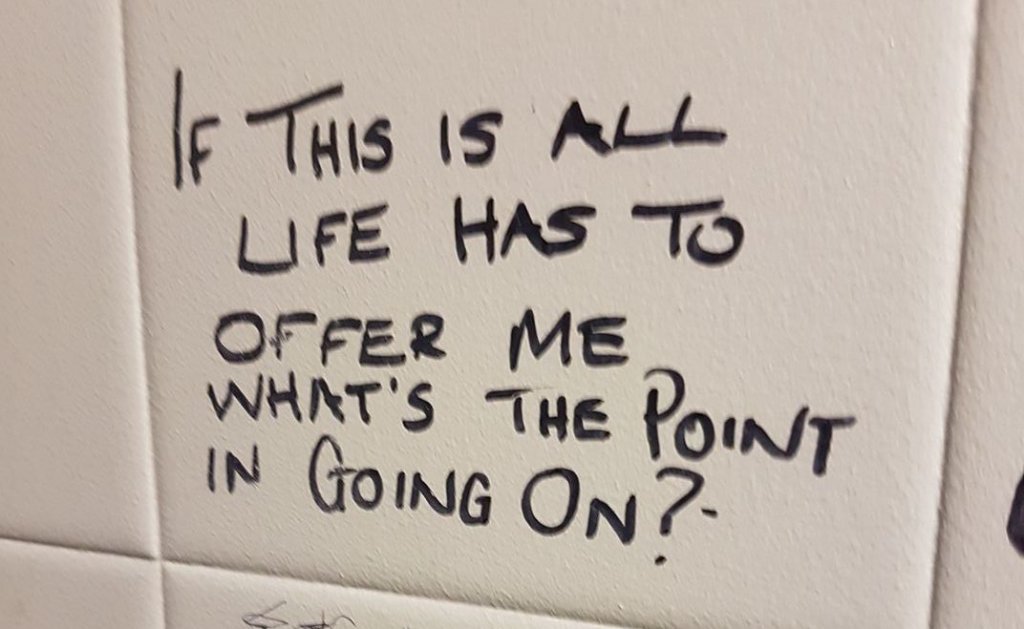 IF THIS IS ALL
LIFE HAS TO
OFFER ME
WHAT'S THE POINT
IN GOING ON?